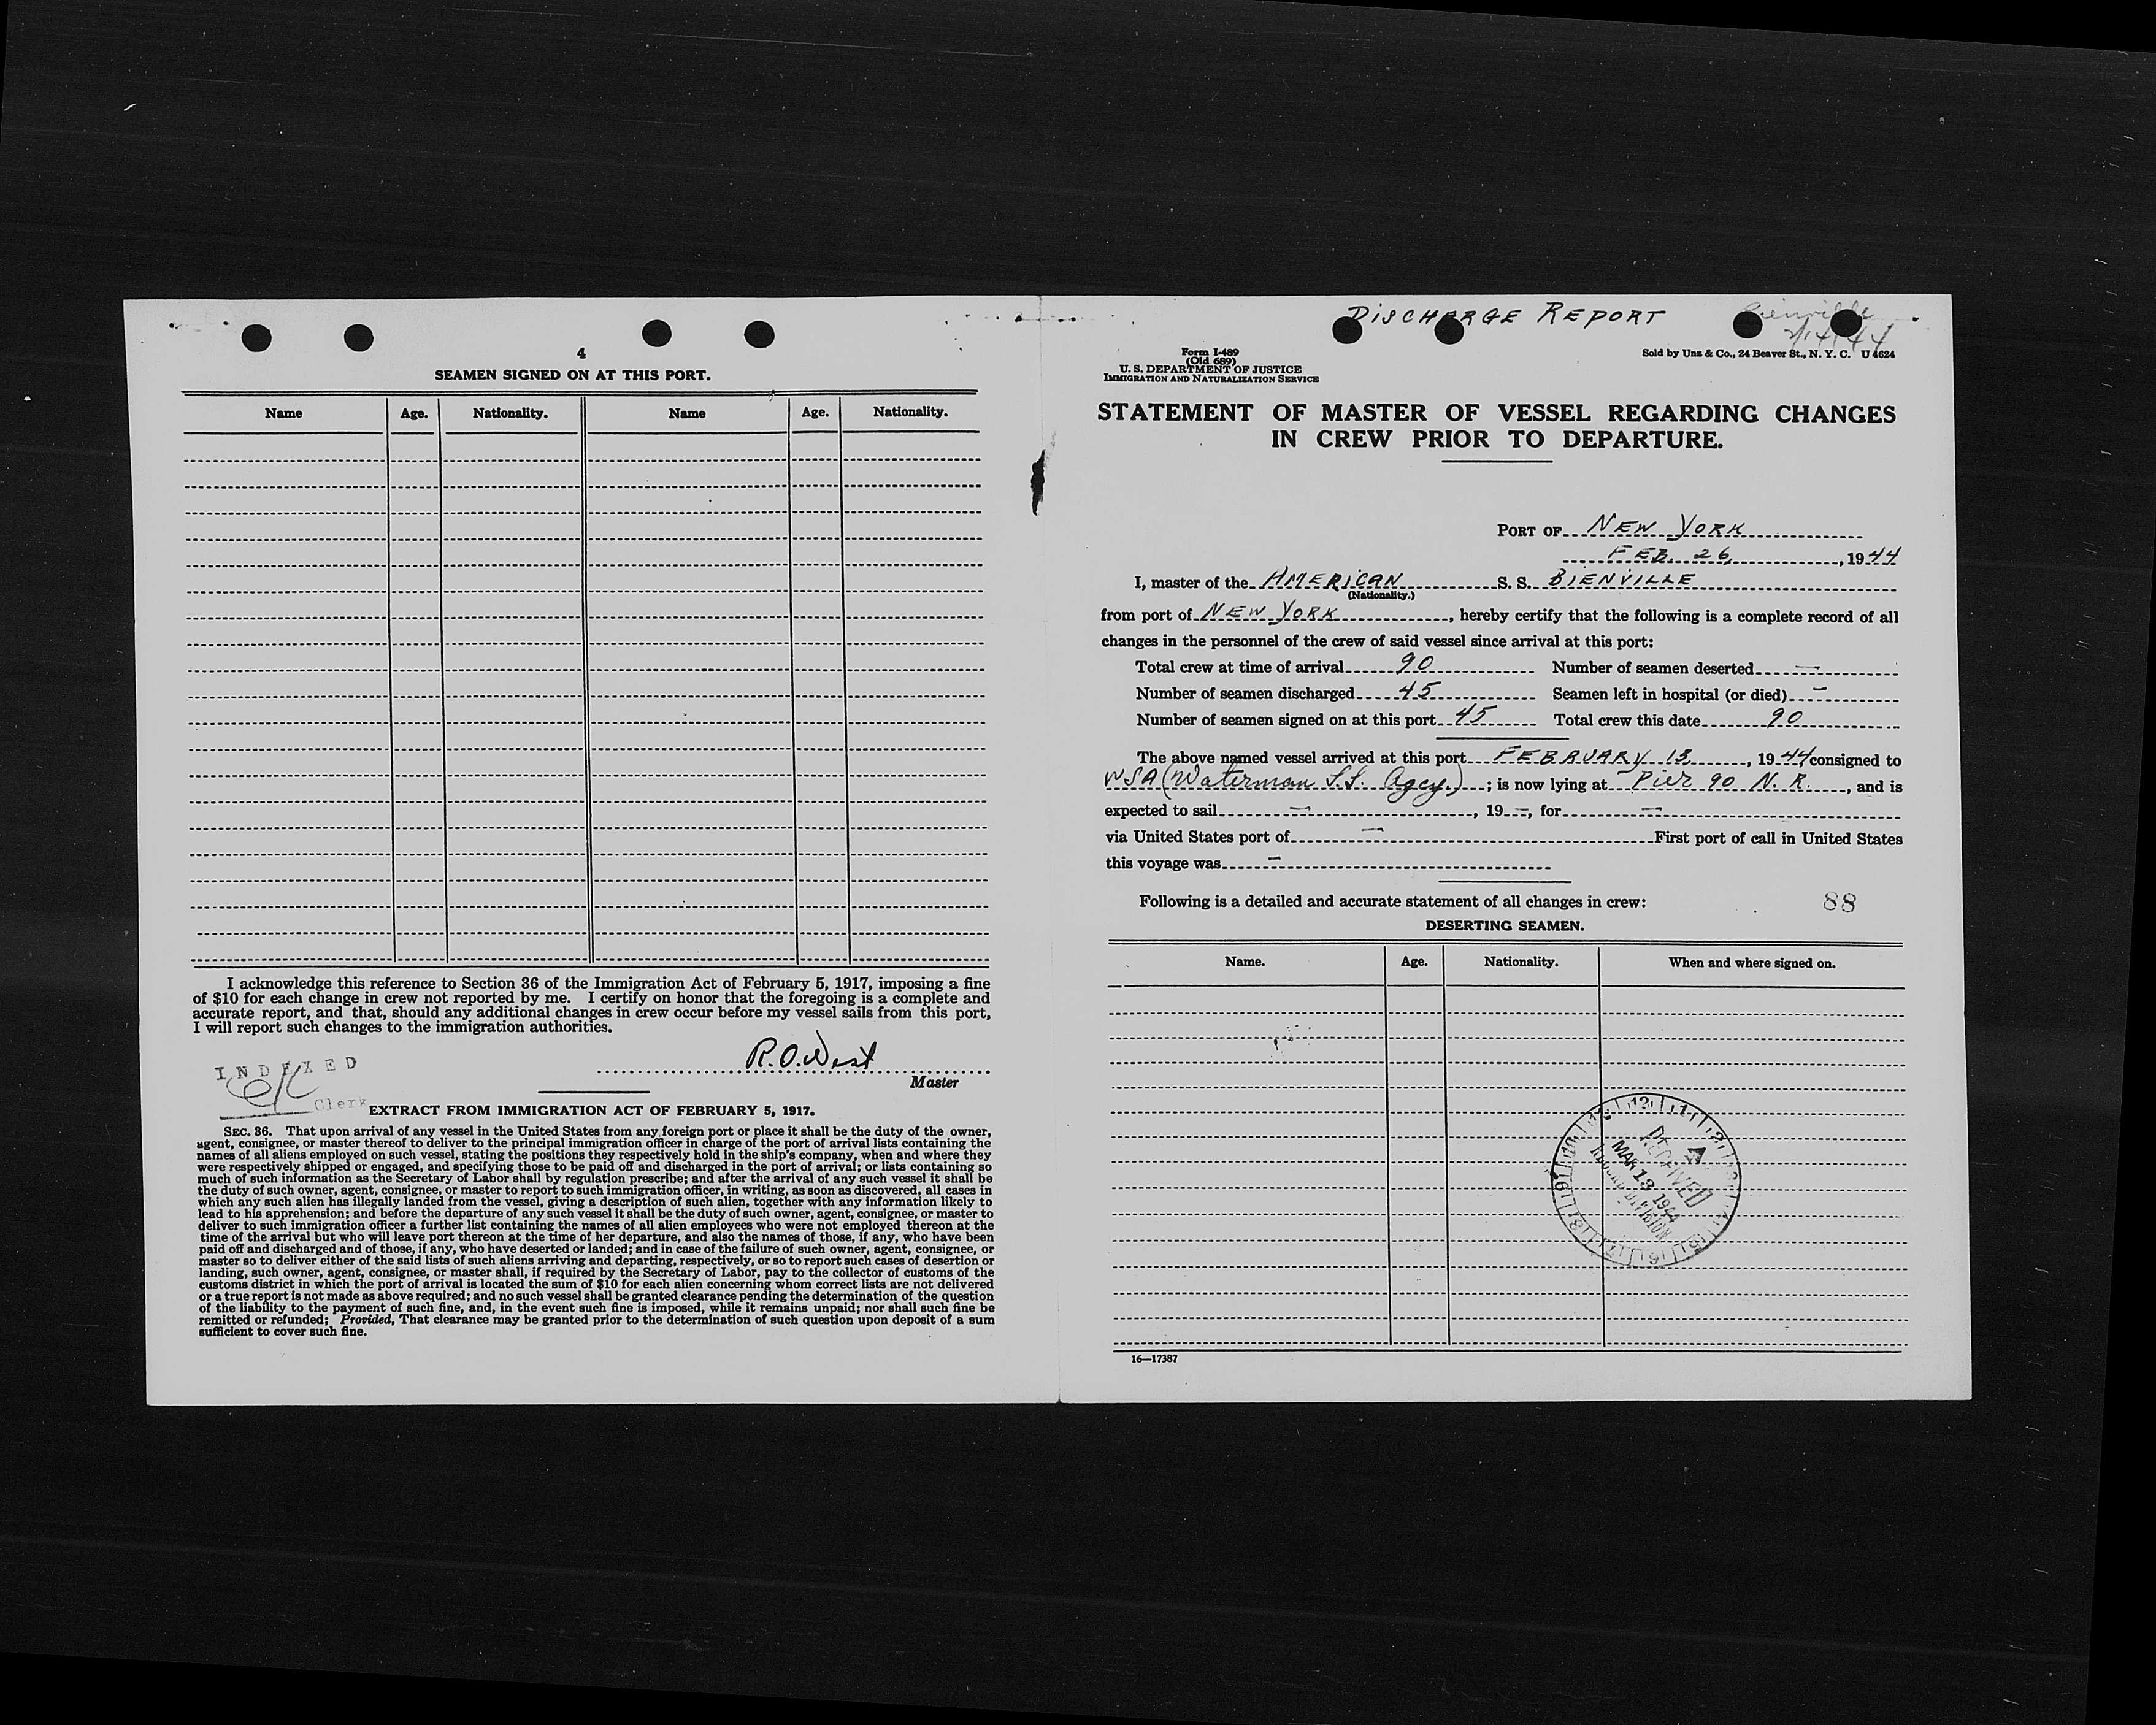 4
SEAMEN SIGNED ON AT THIS PORT.
Name Age. Nationality. Name Age. Nationality.
I acknowledge this reference to Section 36 of the Immigration Act of February 5, 1917, imposing a fine
of $10 for each change in crew not reported by me. I certify on honor that the foregoing is a complete and
accurate report, and that, should any additional changes in crew occur before my vessel sails from this port,
I will report such changes to the immigration authorities.
R.O.West
Master
INDEXED
Clerk
EXTRACT FROM IMMIGRATION ACT OF FEBRUARY 5, 1917.
SEC. 36. That upon arrival of any vessel in the United States from any foreign port or place it shall be the duty of the owner,
agent, consignee, or master thereof to deliver to the principal immigration officer in charge of the port of arrival lists containing the
names of all aliens employed on such vessel, stating the positions they respectively hold in the ship's company, when and where they
were respectively shipped or engaged, and specifying those to be paid off and discharged in the port of arrival; or lists containing so
much of such information as the Secretary of Labor shall by regulation prescribe; and after the arrival of any such vessel it shall be
the duty of such owner, agent, consignee, or master to report to such immigration officer, in writing, as soon as discovered, all cases in
which any such alien has illegally landed from the vessel, giving a description of such alien, together with any information likely to
lead to his apprehension; and before the departure of any such vessel it shall be the duty of such owner, agent, consignee, or master to
deliver to such immigration officer a further list containing the names of all alien employees who were not employed thereon at the
time of the arrival but who will leave port thereon at the time of her departure, and also the names of those, if any, who have been
paid off and discharged and of those, if any, who have deserted or landed; and in case of the failure of such owner, agent, consignee, or
master so to deliver either of the said lists of such aliens arriving and departing, respectively, or so to report such cases of desertion or
landing, such owner, agent, consignee, or master shall, if required by the Secretary of Labor, pay to the collector of customs of the
customs district in which the port of arrival is located the sum of $10 for each alien concerning whom correct lists are not delivered
or a true report is not made as above required; and no such vessel shall be granted clearance pending the determination of the question
of the liability to the payment of such fine, and, in the event such fine is imposed, while it remains unpaid; nor shall such fine be
remitted or refunded; Provided, That clearance may be granted prior to the determination of such question upon deposit of a sum
sufficient to cover such fine.
DISCHARGE REPORT
Bienville
2/14/44
Form I-489
(Old 689)
U. S. DEPARTMENT OF JUSTICE
IMMIGRATION AND NATURALIZATION SERVICE
Sold by Unz & Co., 24 Beaver St., N. Y. C. U 4624
STATEMENT OF MASTER OF VESSEL REGARDING CHANGES
IN CREW PRIOR TO DEPARTURE.
PORT OF NEW YORK
FEB. 26, 1944
I, master of the AMERICAN S. S. BIENVILLE
(Nationality.)
from port of NEW YORK, hereby certify that the following is a complete record of all
changes in the personnel of the crew of said vessel since arrival at this port:
Total crew at time of arrival 90 Number of seamen deserted —
Number of seamen discharged 45 Seamen left in hospital (or died) —
Number of seamen signed on at this port 45 Total crew this date 90
The above named vessel arrived at this port FEBRUARY 13, 1944 consigned to
WSA (Waterman S.S. Agcy.); is now lying at Pier 90 N. R., and is
expected to sail —, 19—, for —
via United States port of — First port of call in United States
this voyage was —
Following is a detailed and accurate statement of all changes in crew: 88
DESERTING SEAMEN.
Name. Age. Nationality. When and where signed on.
RECEIVED
MAR 13 1944
DIVISION
16—17387